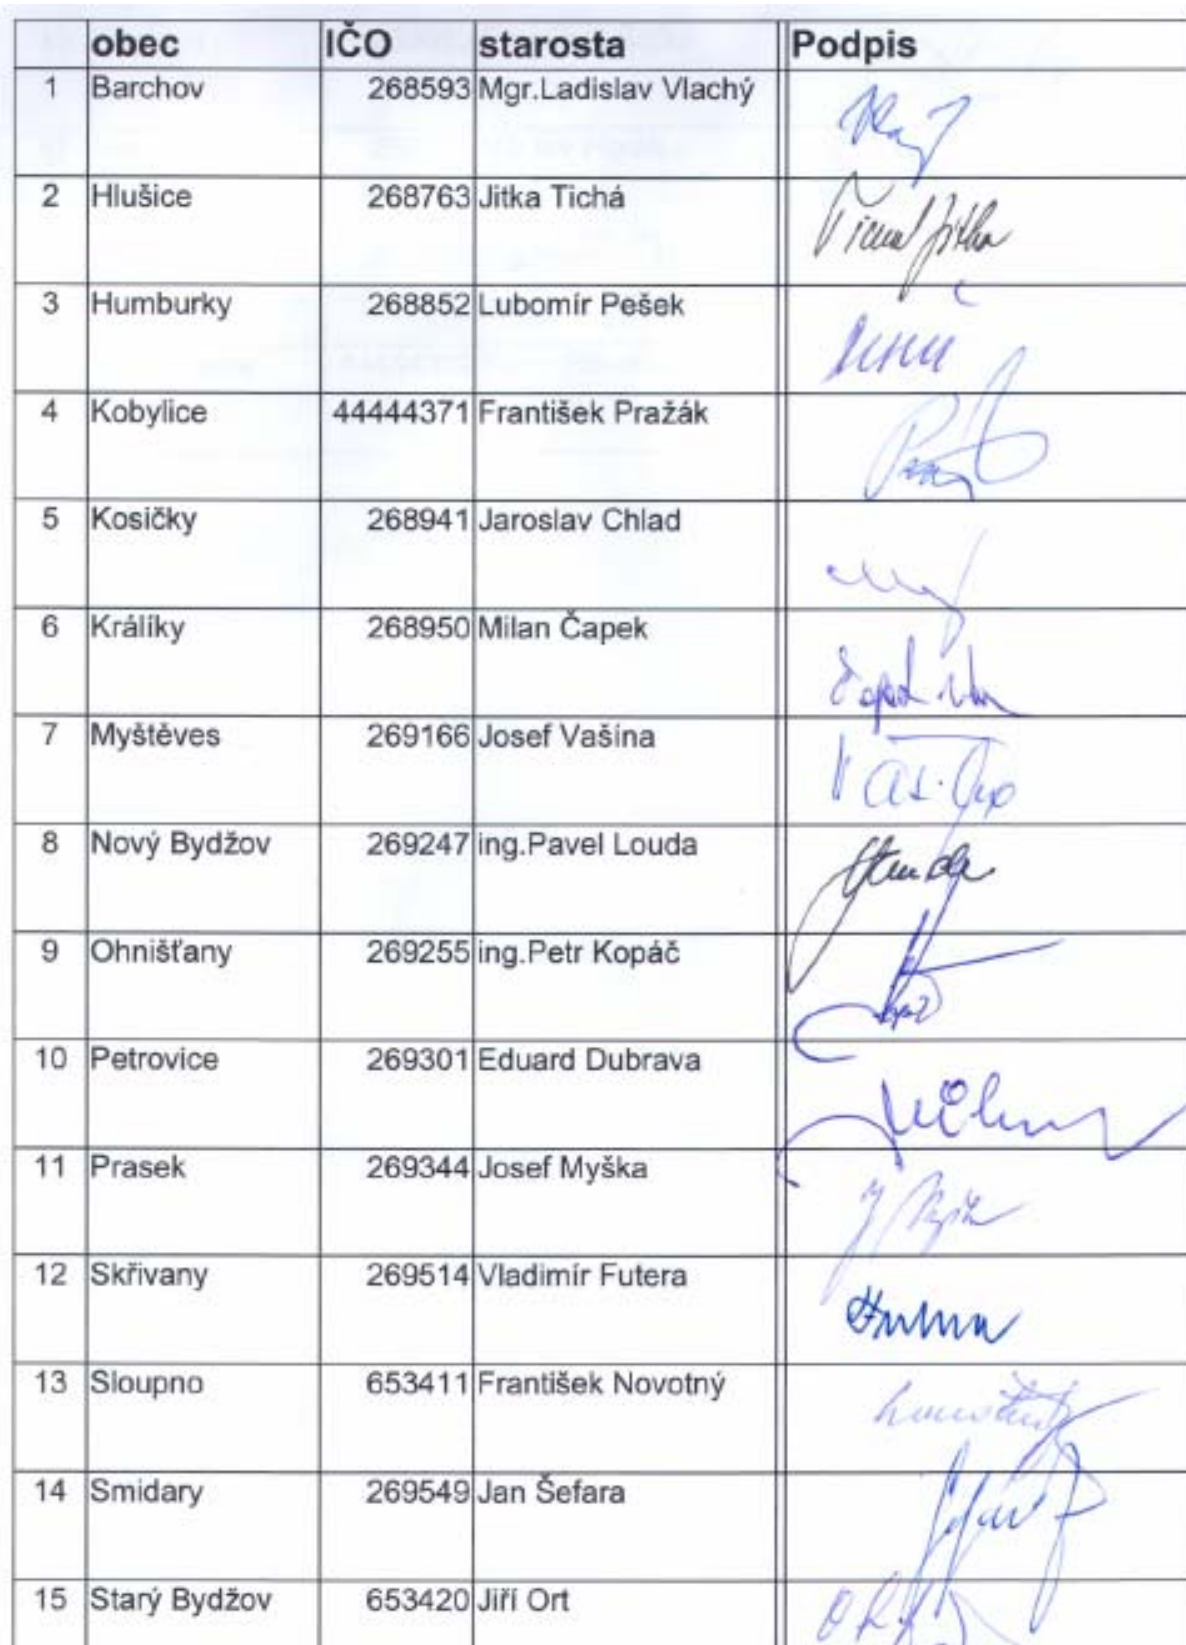 obec IČO starosta Podpis
1 Barchov 268593 Mgr.Ladislav Vlachý
2 Hlušice 268763 Jitka Tichá
3 Humburky 268852 Lubomír Pešek
4 Kobylice 44444371 František Pražák
5 Kosičky 268941 Jaroslav Chlad
6 Králíky 268950 Milan Čapek
7 Myštěves 269166 Josef Vašina
8 Nový Bydžov 269247 ing.Pavel Louda
9 Ohnišťany 269255 ing.Petr Kopáč
10 Petrovice 269301 Eduard Dubrava
11 Prasek 269344 Josef Myška
12 Skřivany 269514 Vladimír Futera
13 Sloupno 653411 František Novotný
14 Smidary 269549 Jan Šefara
15 Starý Bydžov 653420 Jiří Ort